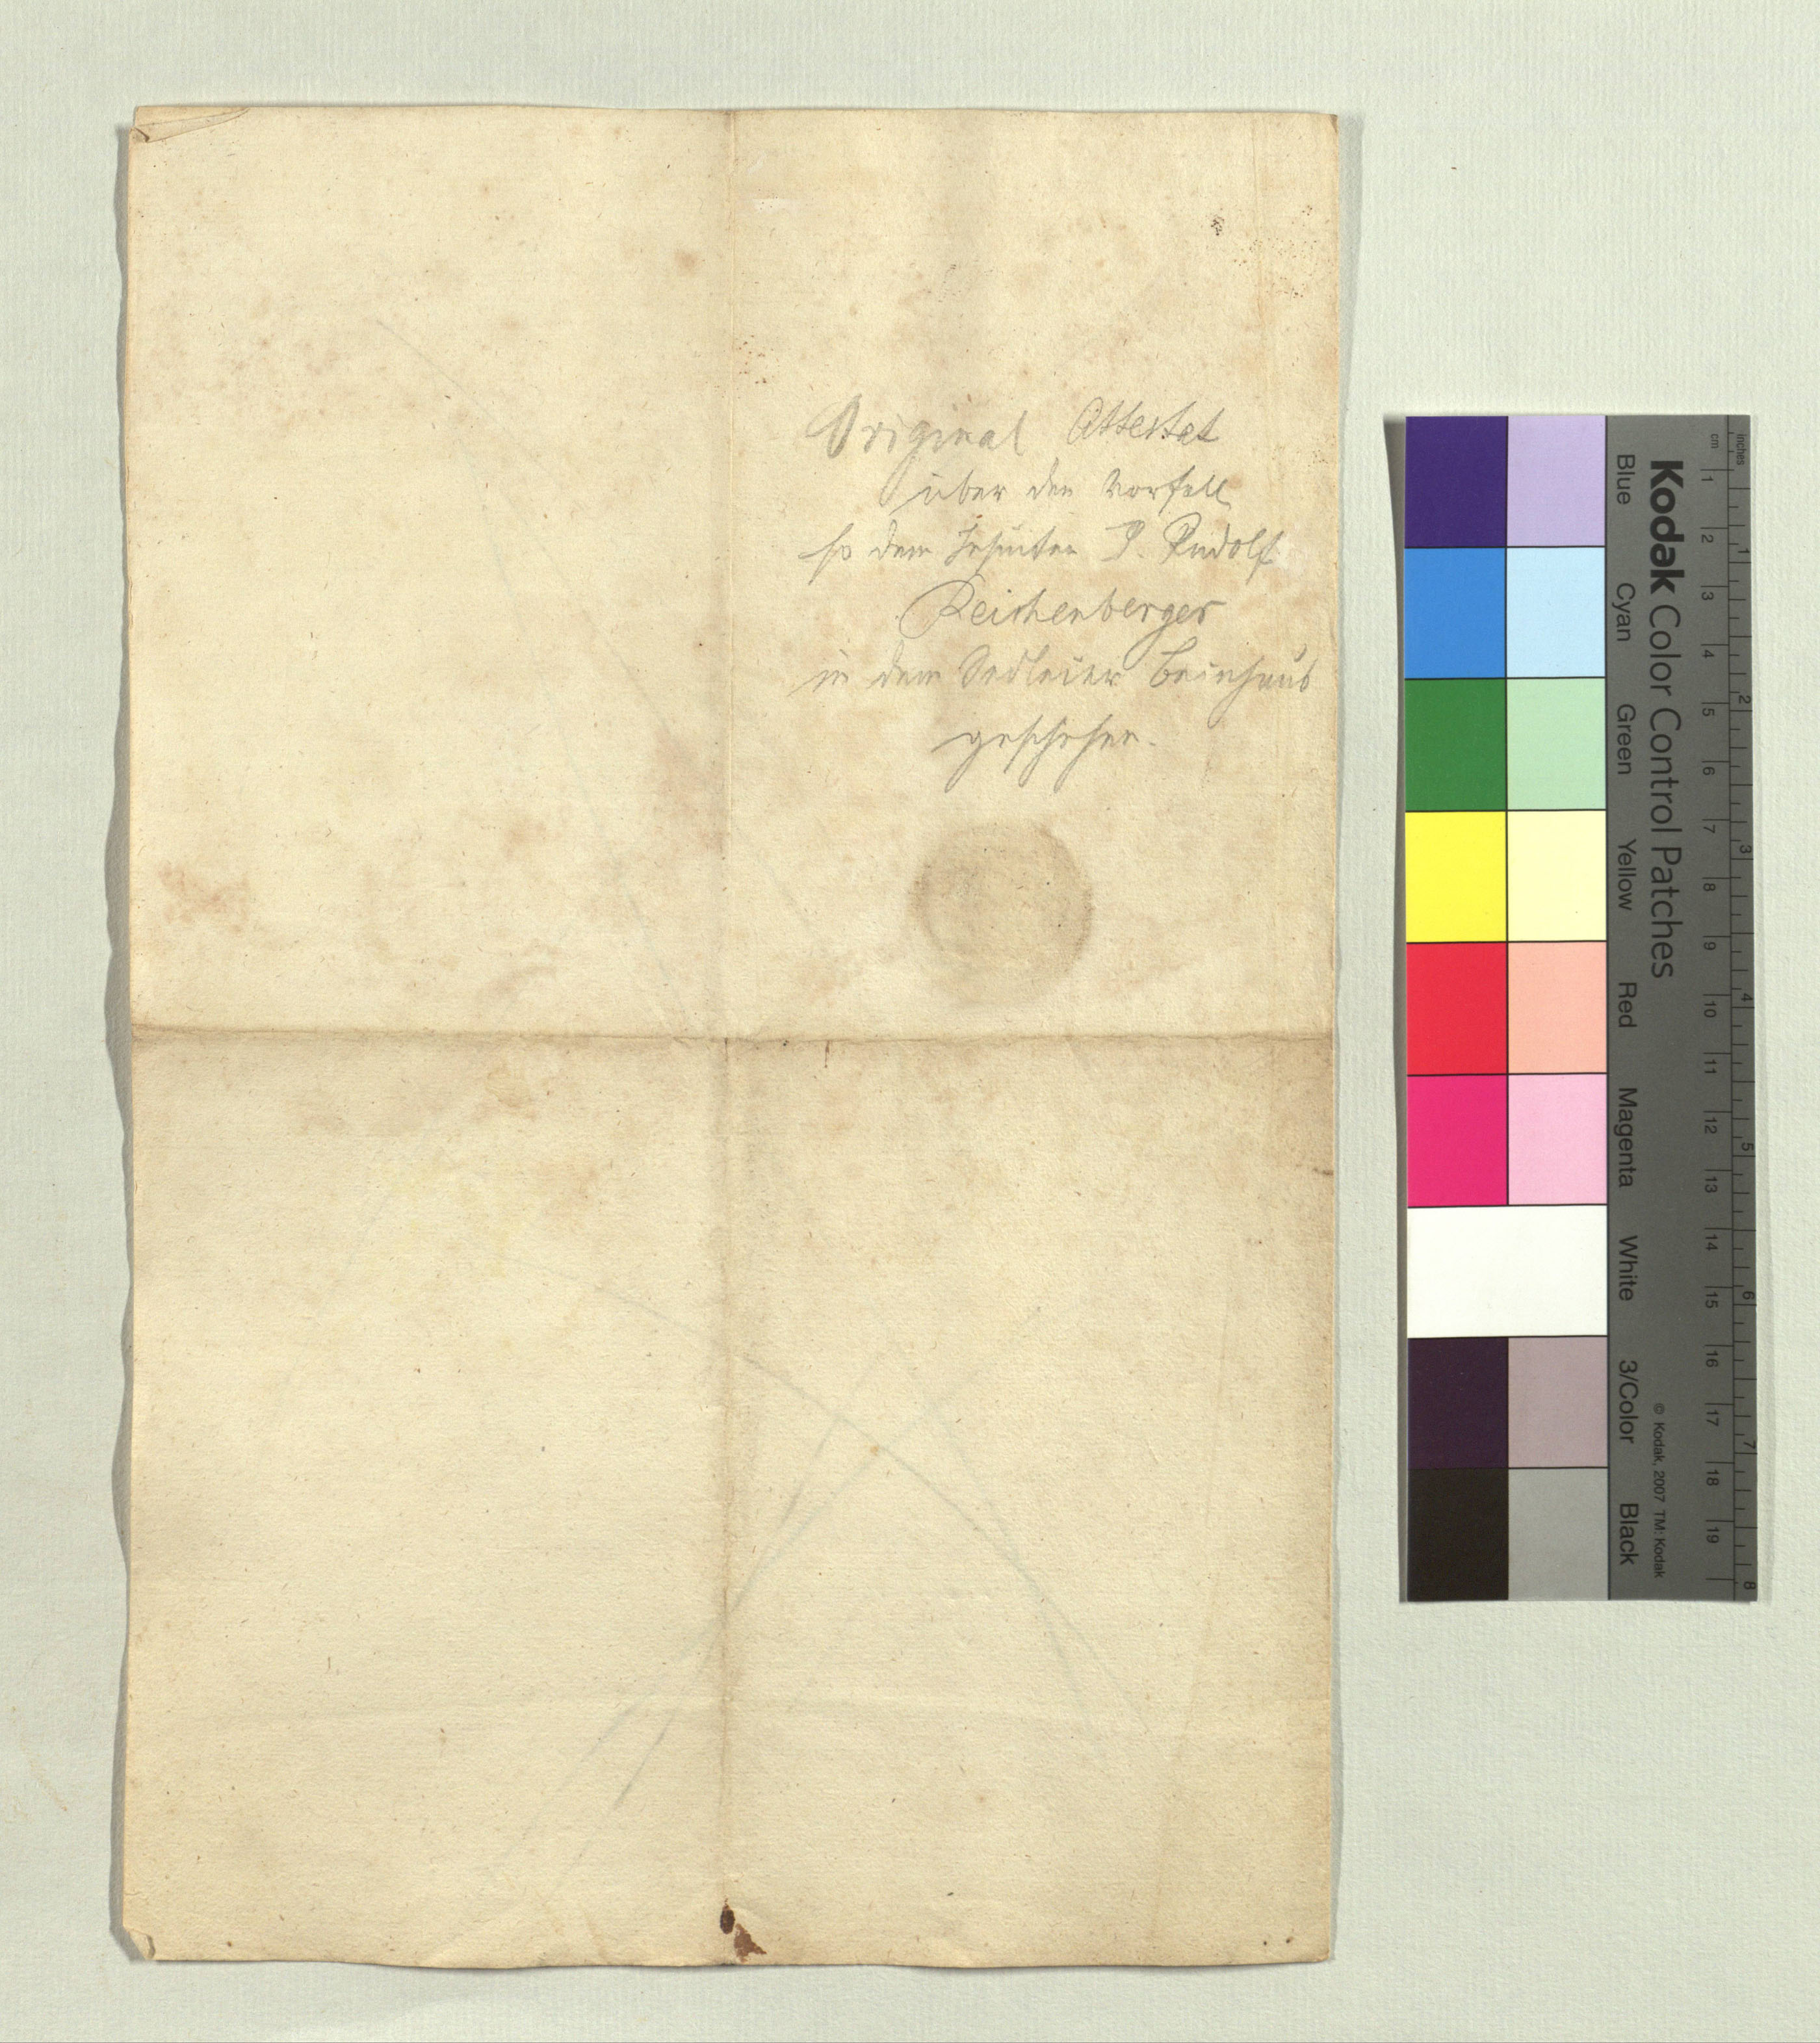 Original Attestat
über den Vorfall
so dem Jesuiten P. Rudolf
Reichenberger
in dem Sedlecier Beinhaus
geschehen.
Kodak Color Control Patches
Blue Cyan Green Yellow Red Magenta White 3/Color Black
© Kodak, 2007 TM: Kodak
cm 1 2 3 4 5 6 7 8 9 10 11 12 13 14 15 16 17 18 19
inches 1 2 3 4 5 6 7 8